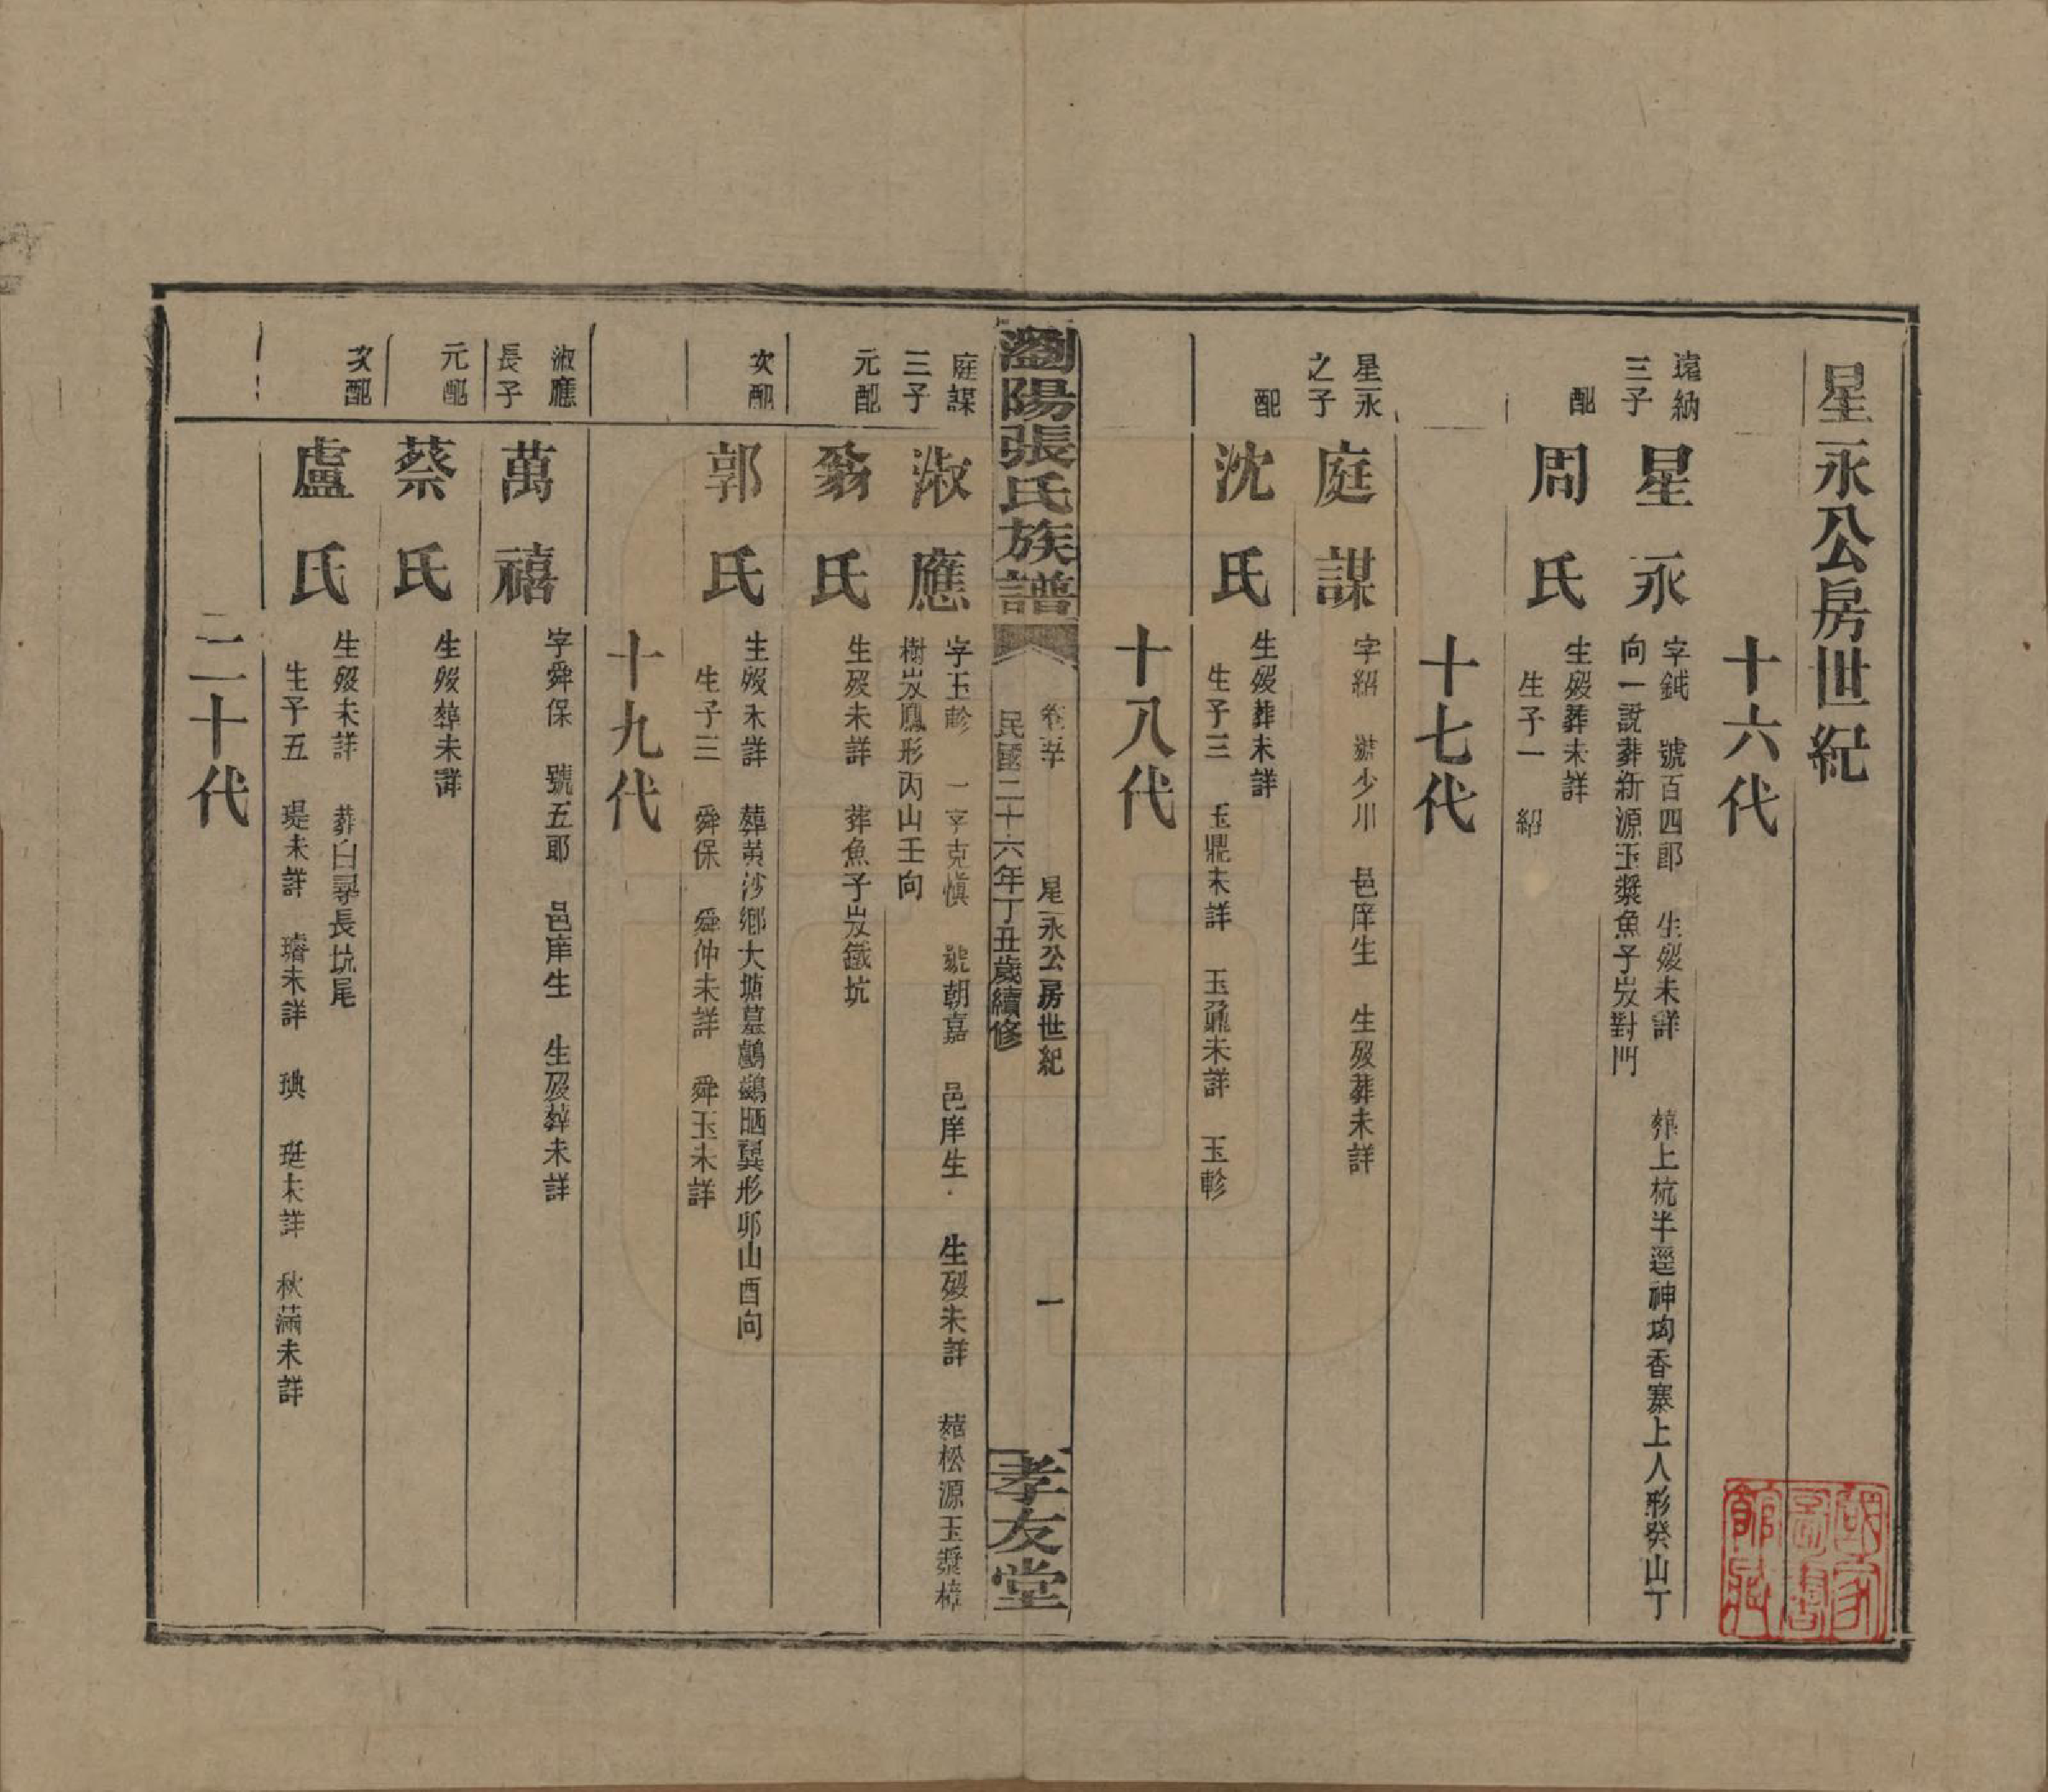 星永公房世紀
十六代
遠紳
三子
星永
字鉞 號百四郎 生歿未詳 葬上杭半逕神坳香寨上人形癸山丁
向一說葬新源玉漿魚子㞳對門
配
周氏
生歿葬未詳
生子一 紹
十七代
星永
之子
庭謀
字紹 號少川 邑庠生 生歿葬未詳
配
沈氏
生歿葬未詳
生子三 玉鼎未詳 玉鼐未詳 玉軫
十八代
瀏陽張氏族譜
卷 星永公房世紀 一
民國二十六年丁丑歲續修
孝友堂
庭謀
三子
淑應
字玉軫 一字克慎 號朝嘉 邑庠生 生歿未詳 葬松源玉漿樟
樹㞳鳳形丙山壬向
元配
翁氏
生歿未詳 葬魚子㞳鐵坑
次配
郭氏
生歿未詳 葬黄沙鄉大塘墓鸕鷀晒翼形卯山酉向
生子三 舜保 舜仲未詳 舜玉未詳
十九代
淑應
長子
萬禧
字舜保 號五郎 邑庠生 生歿葬未詳
元配
蔡氏
生歿葬未詳
次配
盧氏
生歿未詳 葬白㝷長坑尾
生子五 堤未詳 璿未詳 琠 珽未詳 秋滿未詳
二十代
國家
圖書
館藏